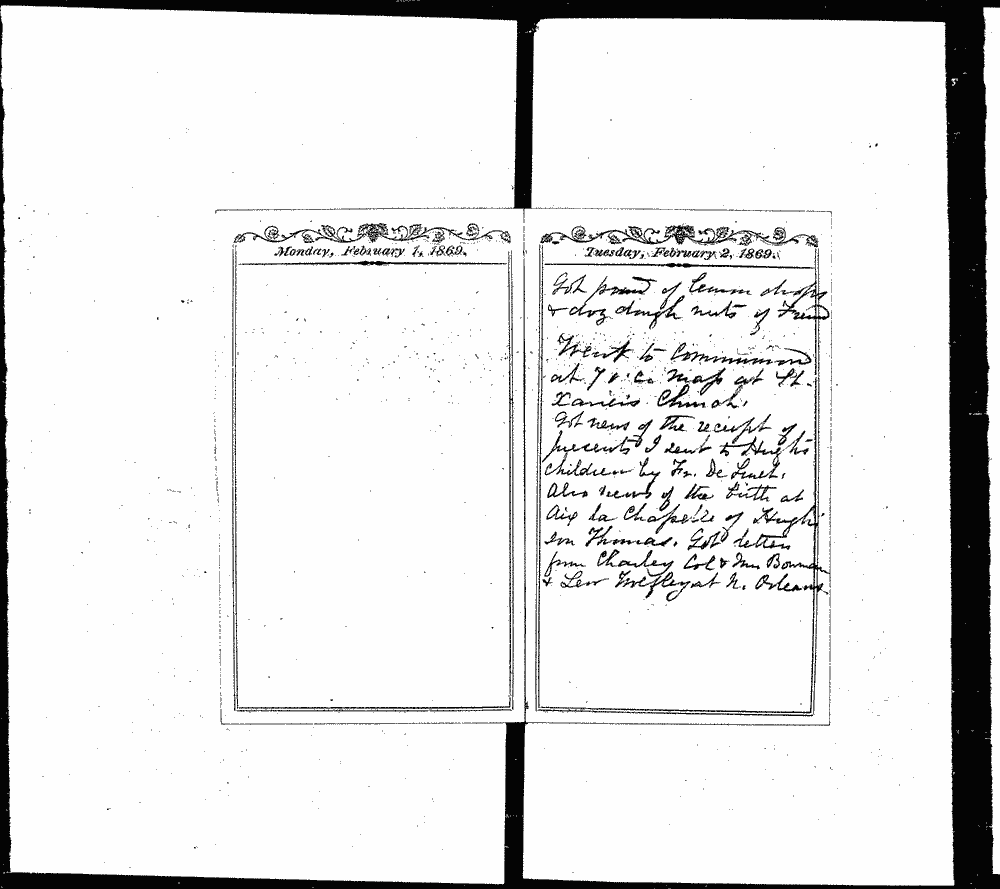 Monday, February 1, 1869.
Tuesday, February 2, 1869.
Got pound of lemon drops
& doz dough nuts of Freund
Went to Communion
at 7 o.c. Mass at St.
Xaviers Church.
Got news of the receipt of
presents I sent to Hugh's
children by Fr. De Smet.
Also news of the birth at
Aix la Chapelle of Hugh's
son Thomas. Got letters
from Charley Col & Mrs Bowman
& Lew at N. Orleans